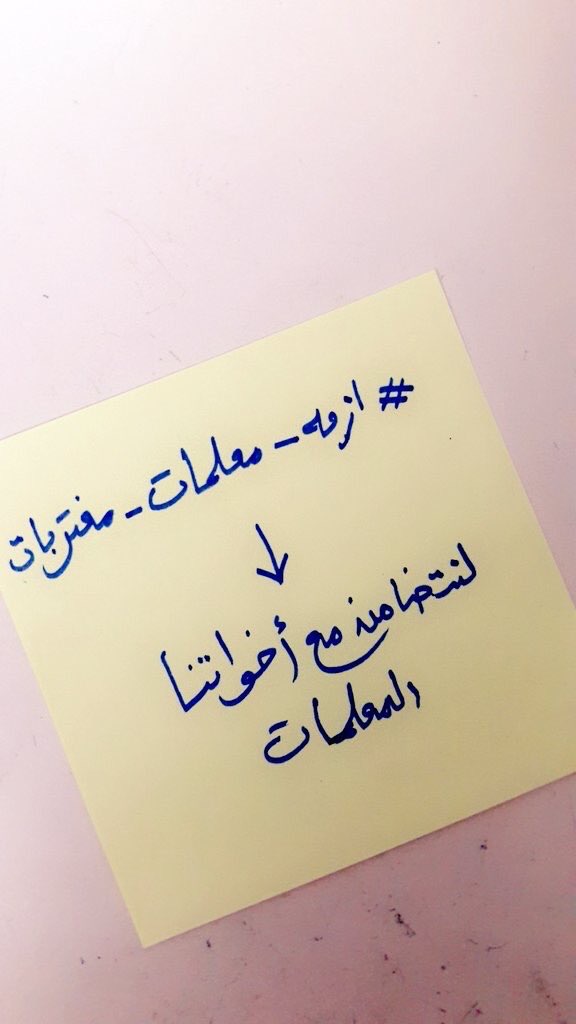 # ازمه - معلمات - مغتربات
↓
لنتضامن مع أخواتنا
المعلمات